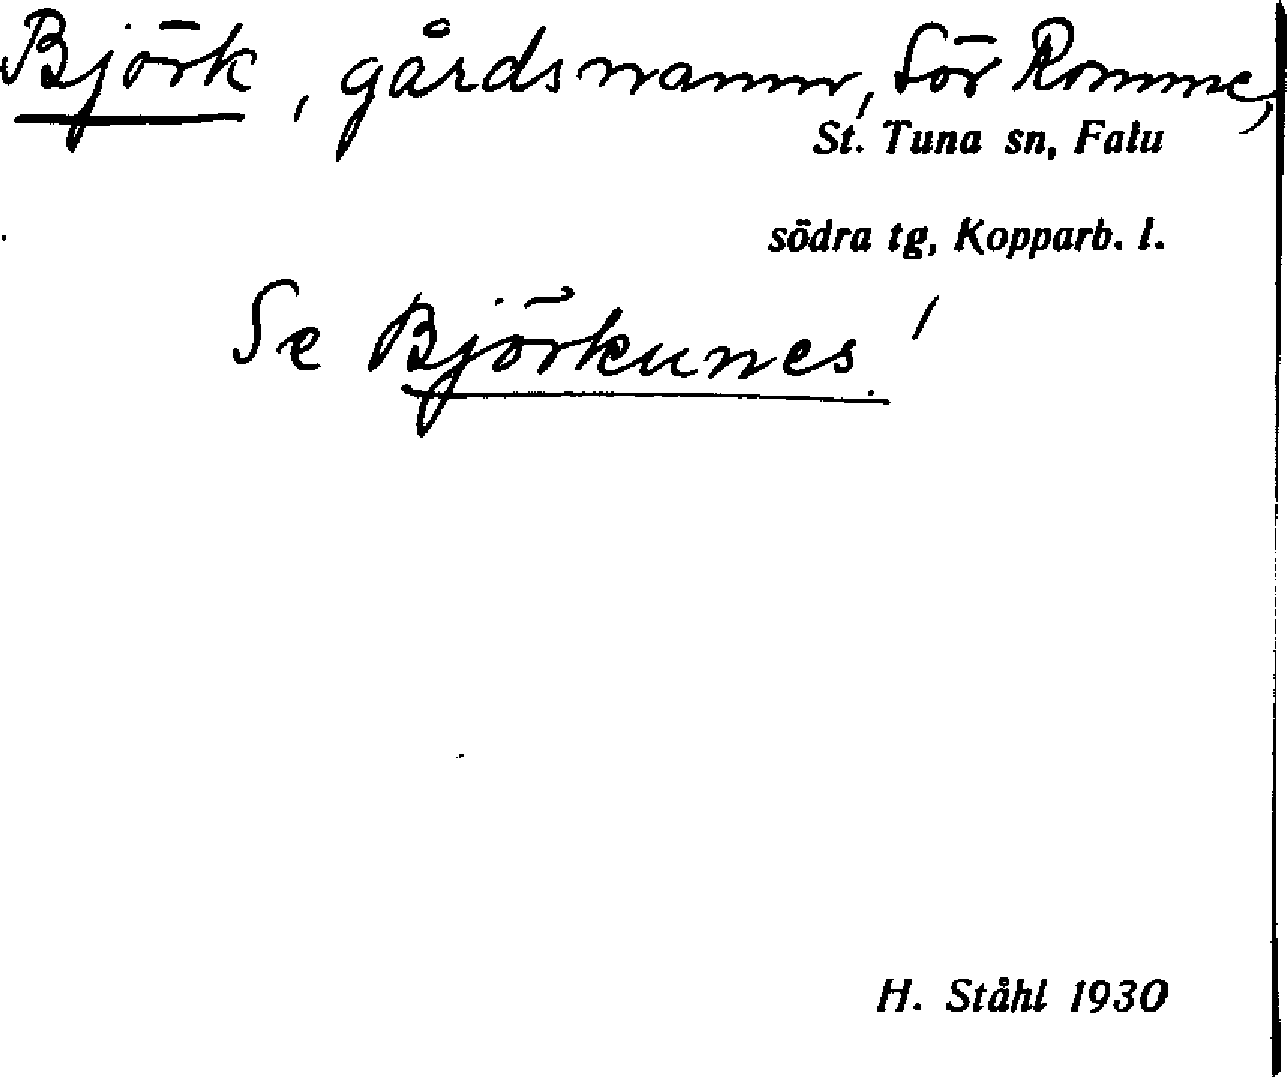 Björk, gårdsnamn, Sör Romme,
St. Tuna sn, Falu
södra tg, Kopparb. l.
Se Björkunes!
H. Ståhl 1930